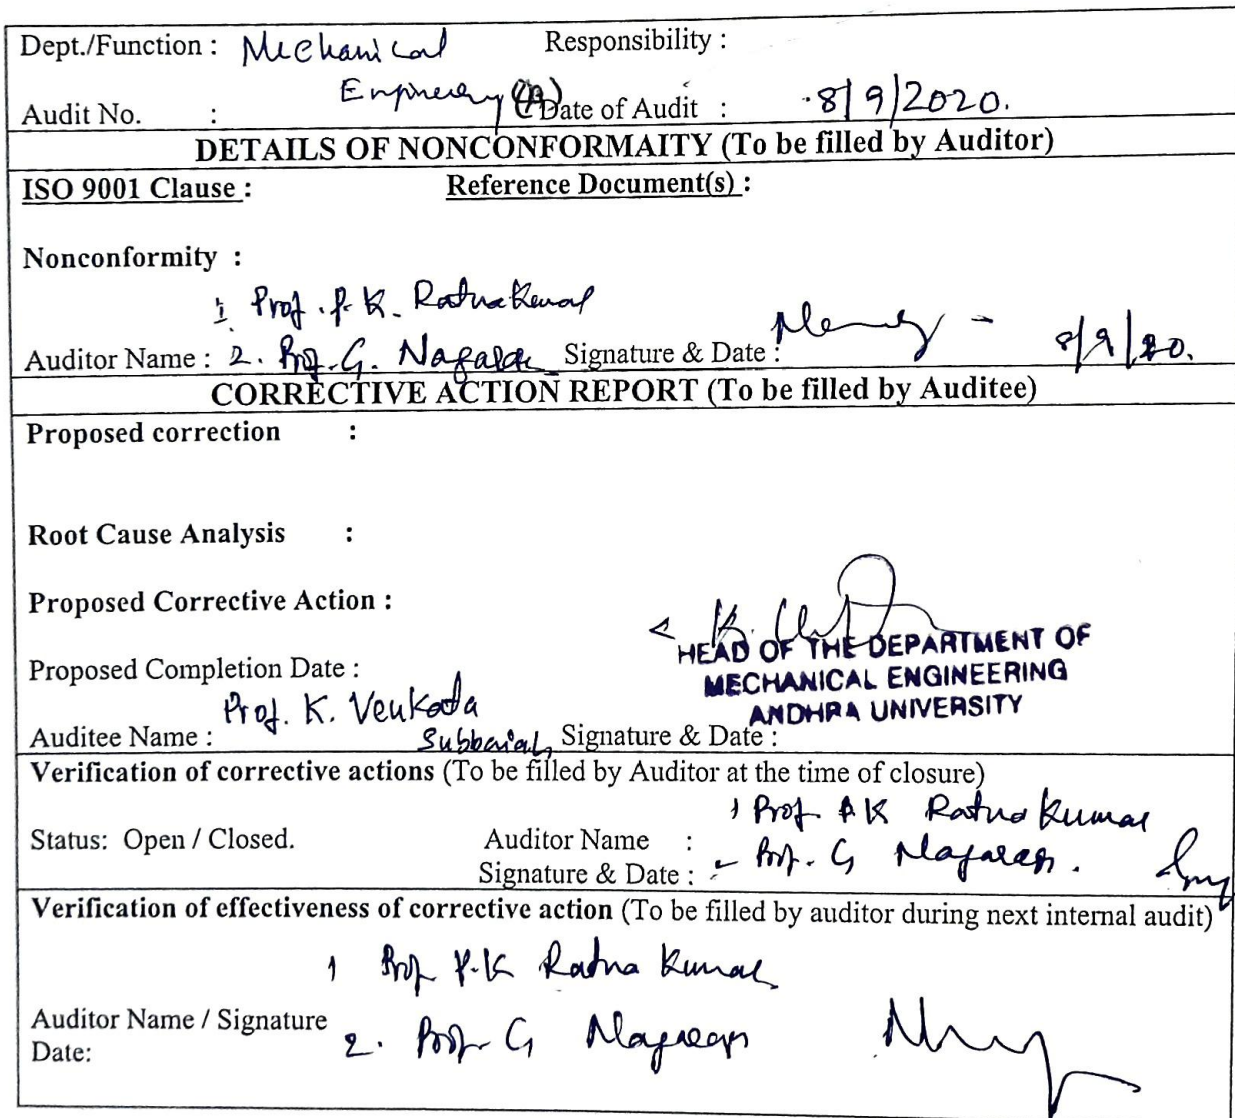 Dept./Function : Mechanical Responsibility :
Engineering (A)
Audit No. : Date of Audit : 8/9/2020.
DETAILS OF NONCONFORMAITY (To be filled by Auditor)
ISO 9001 Clause : Reference Document(s) :
Nonconformity :
1. Prof. P. K. Ratna Kumar
Auditor Name : 2. Prof. G. Signature & Date : 8/9/20.
CORRECTIVE ACTION REPORT (To be filled by Auditee)
Proposed correction :
Root Cause Analysis :
Proposed Corrective Action :
HEAD OF THE DEPARTMENT OF
MECHANICAL ENGINEERING
ANDHRA UNIVERSITY
Proposed Completion Date :
Prof. K. Venkata
Auditee Name : Subbaiah, Signature & Date :
Verification of corrective actions (To be filled by Auditor at the time of closure)
1 Prof K Ratna Kumar
Status: Open / Closed. Auditor Name :
Signature & Date : Prof. G
Verification of effectiveness of corrective action (To be filled by auditor during next internal audit)
1 Prof P.K Ratna Kumar
Auditor Name / Signature
Date: 2. Prof G